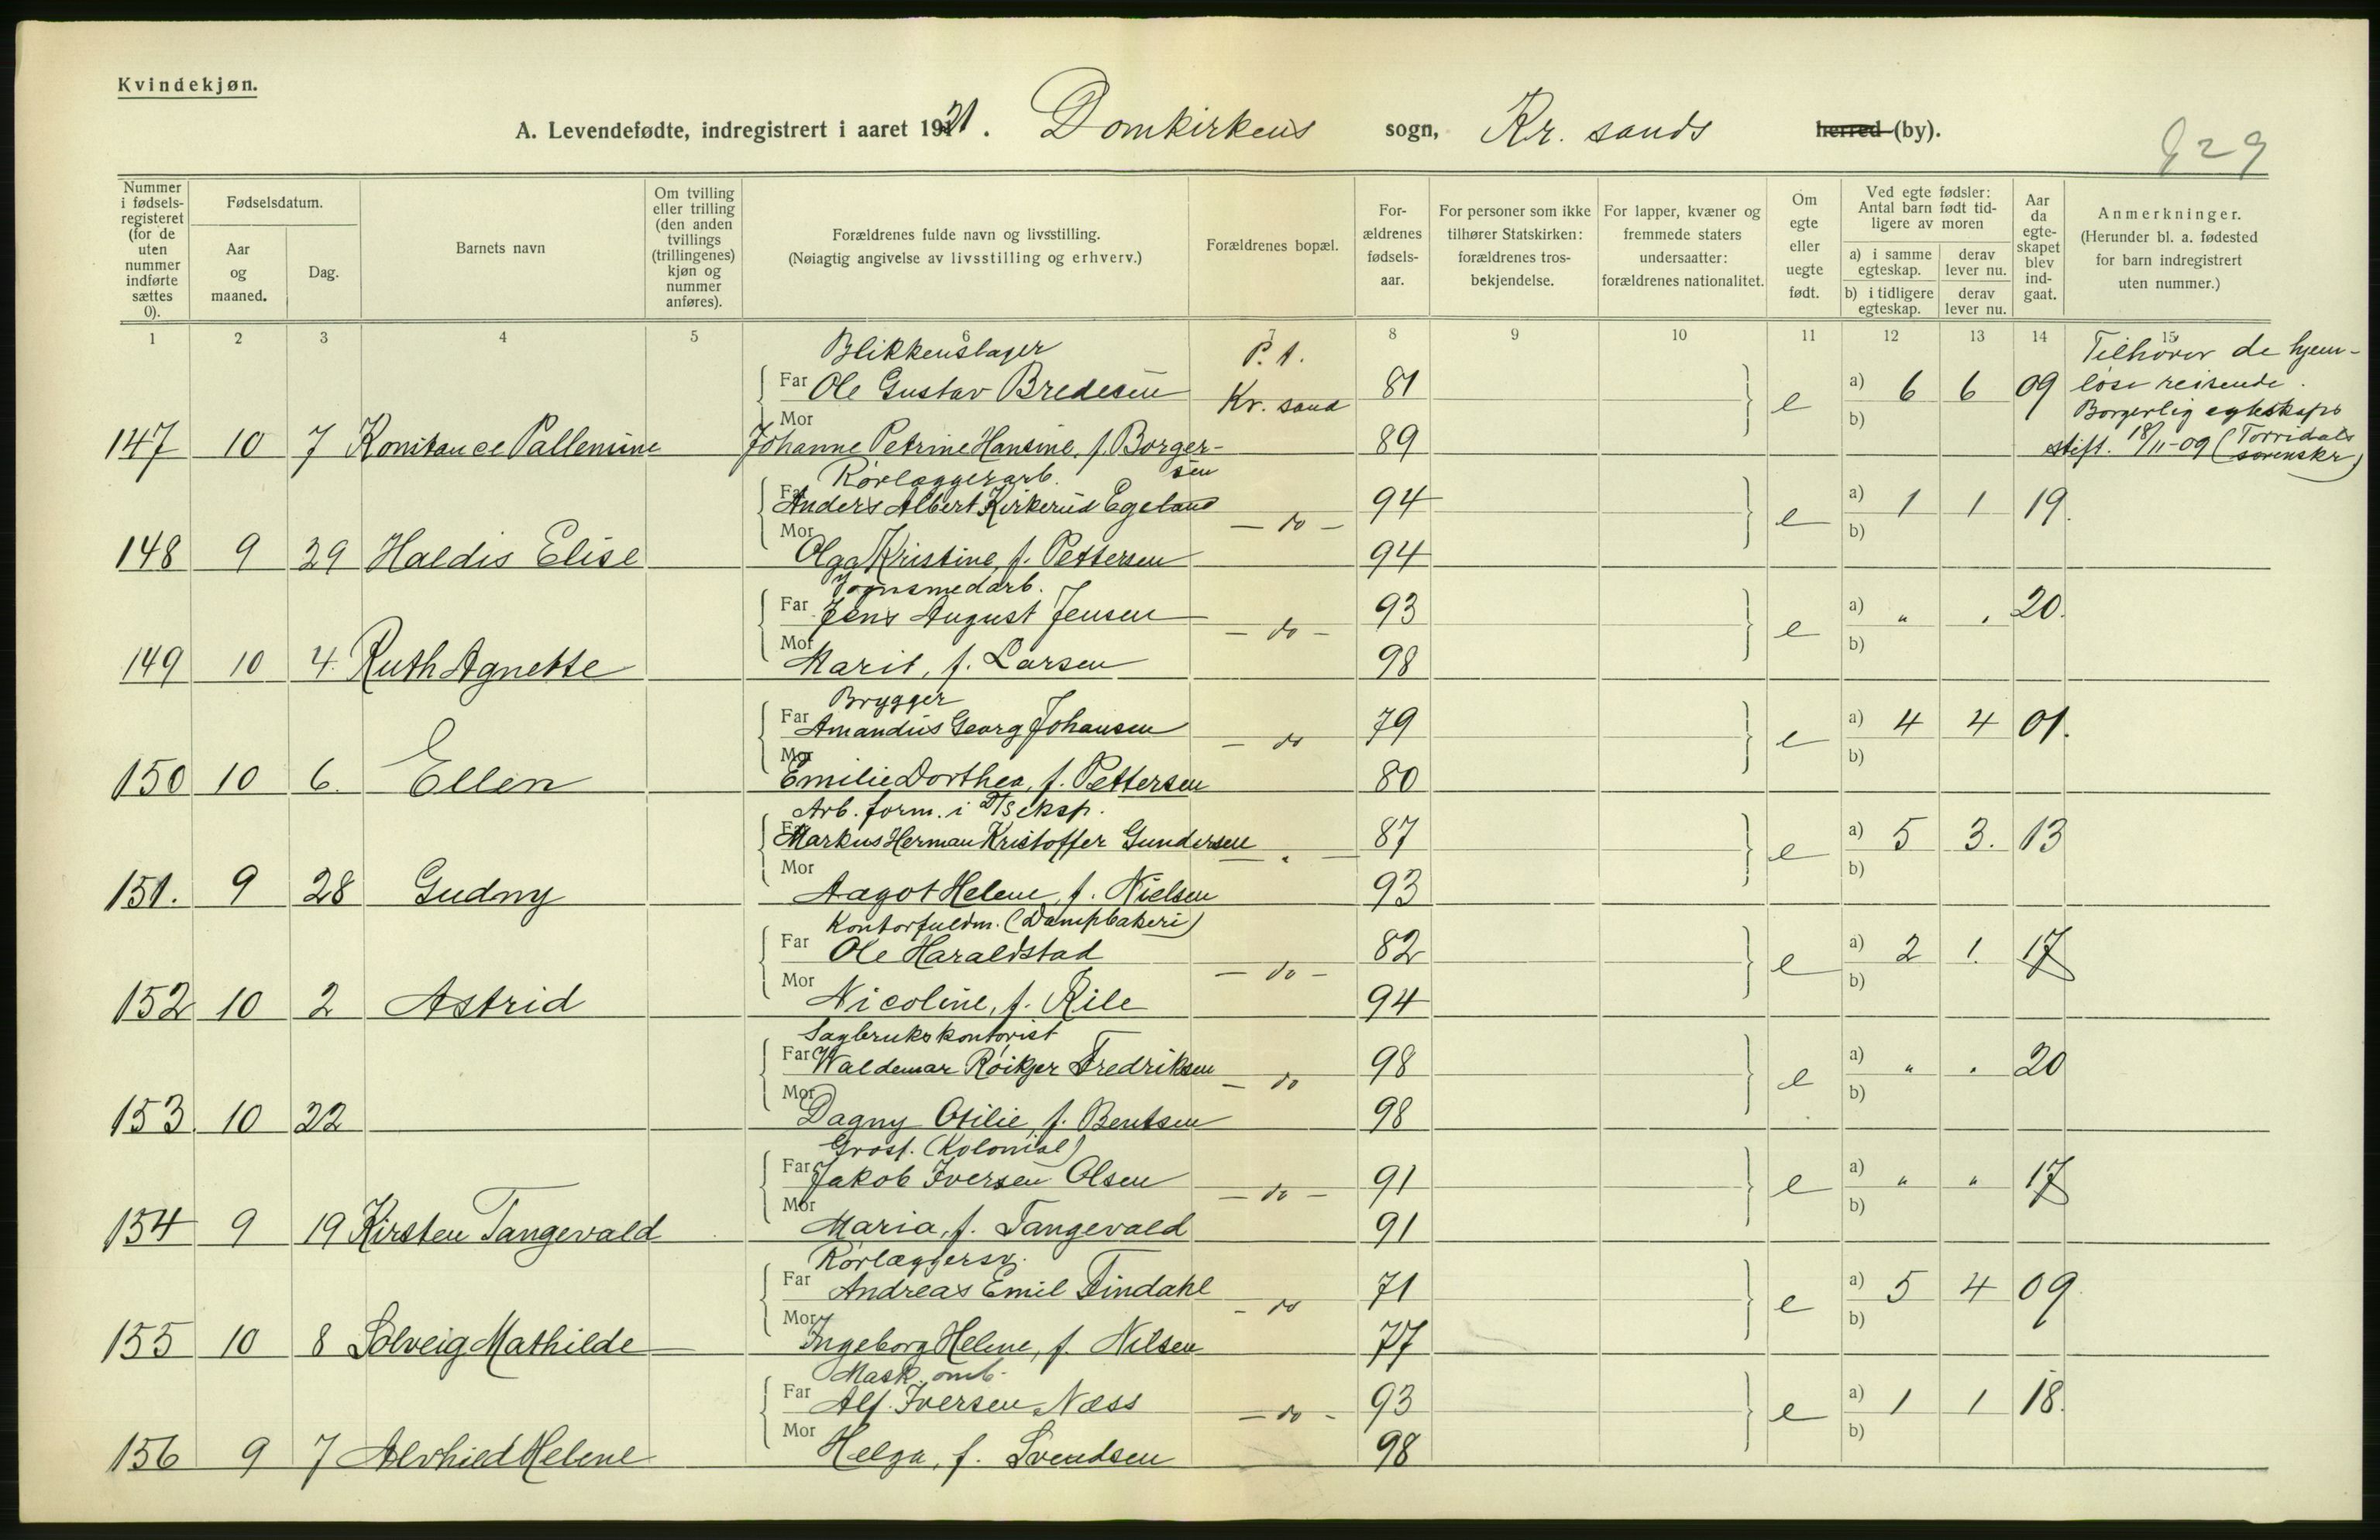 Kvindekjøn.
A. Levendefødte, indregistrert i aaret 1921. Domkirkens sogn, Kr. sands herred (by).
829
Nummer i fødselsregisteret (for de uten nummer indførte sættes 0).
Fødselsdatum.
Aar og maaned.
Dag.
Barnets navn
Om tvilling eller trilling (den anden tvillings (trillingenes) kjøn og nummer anføres).
Forældrenes fulde navn og livsstilling.
(Nøiagtig angivelse av livsstilling og erhverv.)
Forældrenes bopæl.
Forældrenes fødselsaar.
For personer som ikke tilhører Statskirken: forældrenes trosbekjendelse.
For lapper, kvæner og fremmede staters undersaatter: forældrenes nationalitet.
Om egte eller uegte født.
Ved egte fødsler: Antal barn født tidligere av moren
a) i samme egteskap. derav lever nu.
b) i tidligere egteskap. derav lever nu.
Aar da egteskapet blev indgaat.
Anmerkninger.
(Herunder bl. a. fødested for barn indregistrert uten nummer.)
1 2 3 4 5 6 7 8 9 10 11 12 13 14 15
Blikkenslager P. t. Tilhører de hjem-
Far Ole Gustav Bredesen Kr. sand 81 e a) 6 6 09 løse reisende.
Mor b) Borgerlig egteskaps
147 10 7 Konstance Pallemine Johanne Petrine Hansine, f. Borger- 89 stift. 18/11-09 (Torridals
sen sorenskr)
Rørlæggerarb.
Far Anders Albert Kirkerud Egeland - do - 94 e a) 1 1 19.
Mor b)
148 9 29 Haldis Elise Olga Kristine, f. Pettersen 94
Vognsmedarb.
Far Jens August Jensen - do - 93 e a) " " 20.
Mor b)
149 10 4. Ruth Agnette Marit, f. Larsen 98
Brygger
Far Amandus Georg Johansen - do 79 e a) 4 4 01.
Mor b)
150 10 6. Ellen Emilie Dorthea, f. Pettersen 80
Arb. form. i D/S eksp.
Far Markus Herman Kristoffer Gundersen - " - 87 e a) 5 3. 13
Mor b)
151. 9 28 Gudny Aagot Helene, f. Nielsen 93
Kontorfuldm. (Dampbakeri)
Far Ole Haraldstad - do - 82 e a) 2 1. 17
Mor b)
152 10 2 Astrid Nicoline, f. Rile 94
Sagbrukskontorist
Far Waldemar Röikjer Fredriksen - do 98 e a) " " 20
Mor b)
153. 10 22 Dagny Otilie, f. Bentsen 98
Gross. (Kolonial)
Far Jakob Iversen Olsen - do - 91 e a) " " 17
Mor b)
154 9 19 Kirsten Tangevald Maria, f. Tangevald 91
Rørlæggersv.
Far Andreas Emil Tindahl - do 71 e a) 5 4 09
Mor b)
155 10 8 Solveig Mathilde Ingeborg Helene, f. Nilsen 77
Mask. arb.
Far Alf. Iversen Næss - do - 93 e a) 1 1 18.
Mor b)
156 9 7 Alvhild Helene Helga, f. Svendsen 98